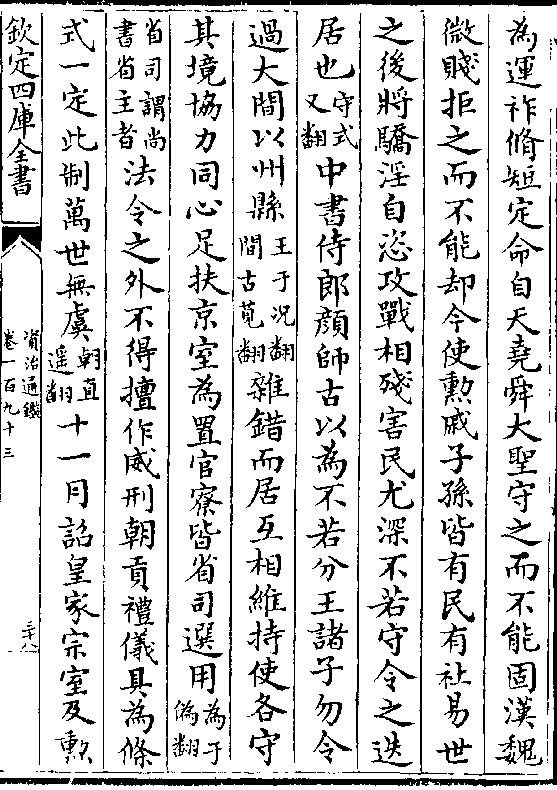 為運祚脩短定命自天堯舜大聖守之而不能固漢魏
微賤拒之而不能却今使勲戚子孫皆有民有社易世
之後將驕淫自恣攻戰相殘害民尤深不若守令之迭
居也守式又翻中書侍郎顔師古以為不若分王諸子勿令
過大間以州縣王于况翻間古莧翻雜錯而居互相維持使各守
其境協力同心足扶京室為置官寮皆省司選用為于偽翻
省司謂尚書省主者法令之外不得擅作威刑朝貢禮儀具為條
式一定此制萬世無虞朝直遥翻十一月詔皇家宗室及勲
欽定四庫全書
資治通鑑
卷一百九十三
三十八